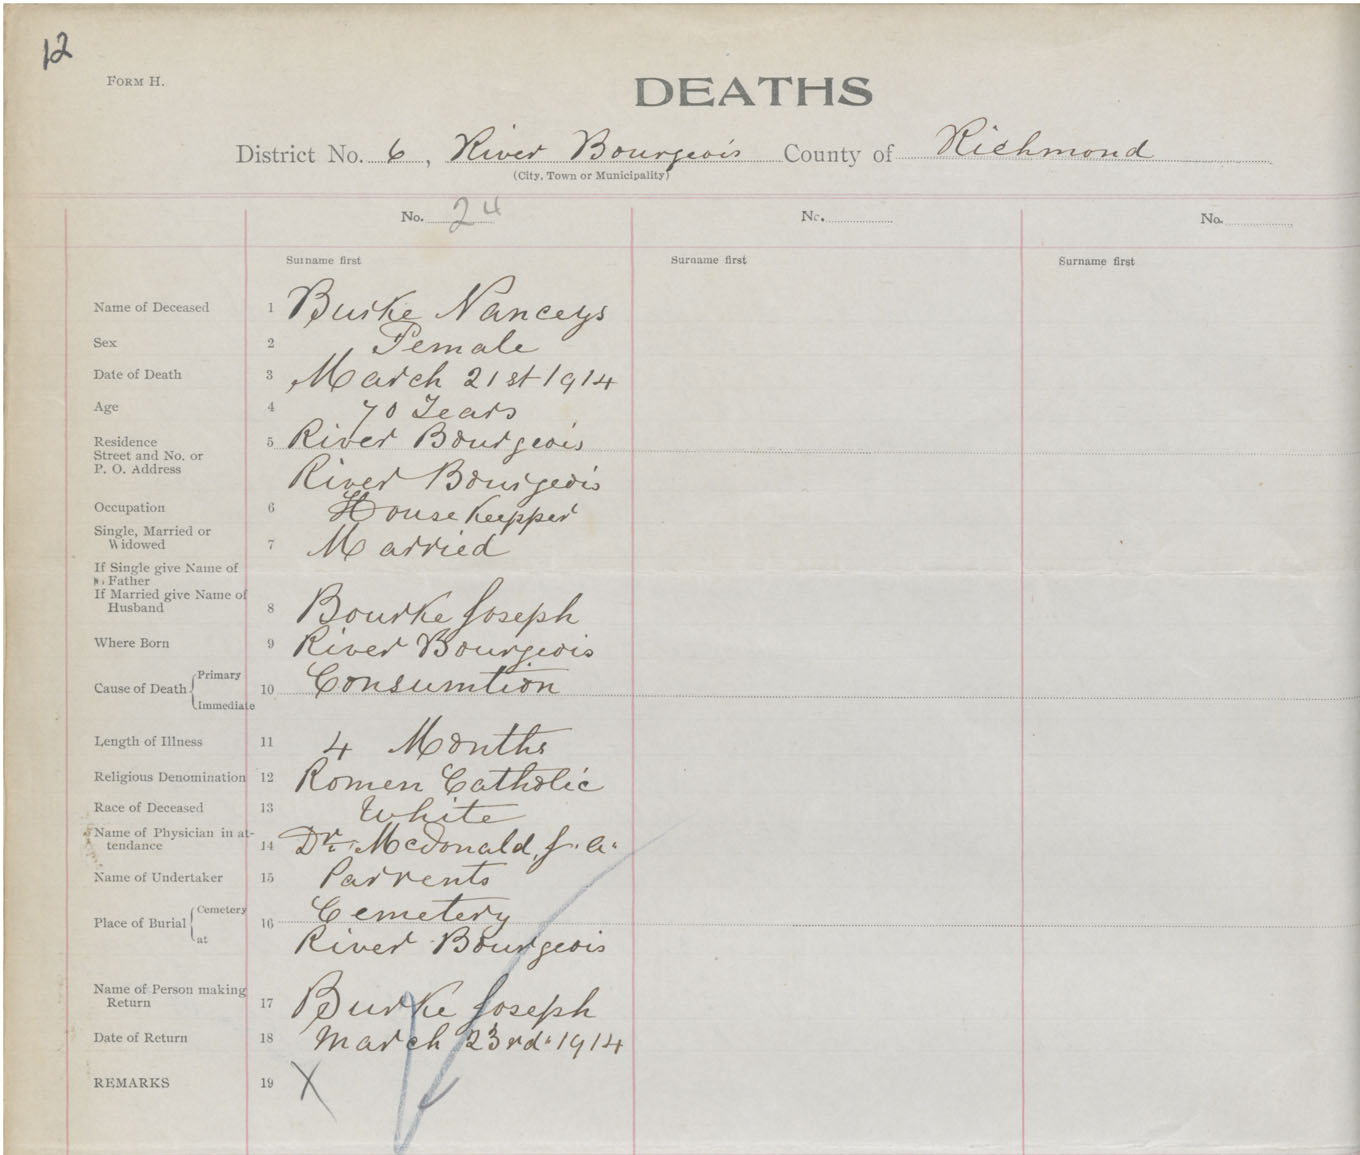 12
FORM H.
DEATHS
District No. 6, River Bourgeois County of Richmond
(City, Town or Municipality)
No. 24 No. No.
Surname first Surname first Surname first
Name of Deceased 1 Burke Nanceys
Sex 2 Female
Date of Death 3 March 21st 1914
Age 4 70 Years
Residence 5 River Bourgeois
Street and No. or
P. O. Address River Bourgeois
Occupation 6 House Keepper
Single, Married or
Widowed 7 Married
If Single give Name of
Father
If Married give Name of
Husband 8 Bourke Joseph
Where Born 9 River Bourgeois
Cause of Death Primary 10 Consumtion
Immediate
Length of Illness 11 4 Months
Religious Denomination 12 Romen Catholic
Race of Deceased 13 White
Name of Physician in at-
tendance 14 Dr. McDonald, J. A.
Name of Undertaker 15 Parrents
Place of Burial Cemetery 16 Cemetery
at River Bourgeois
Name of Person making
Return 17 Burke Joseph
Date of Return 18 March 23rd 1914
REMARKS 19 X